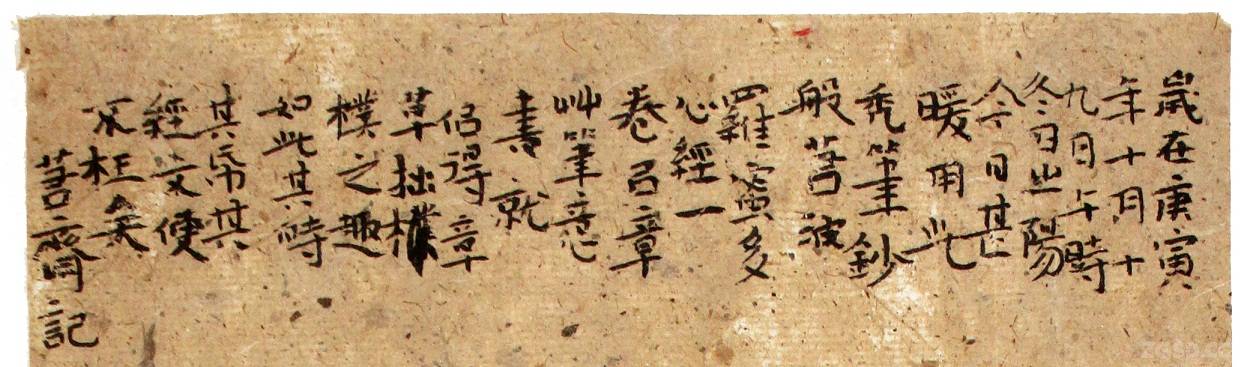 歲在庚寅
年十月十
九日午時
冬日出陽
今日甚
暖用此
禿筆鈔
般若波
羅蜜多
心經一
卷吕章
艸筆意
書就
侣得章
草拙樸
樸之趣
如此其時
其帋其
經文便
不枉矣
若齋記